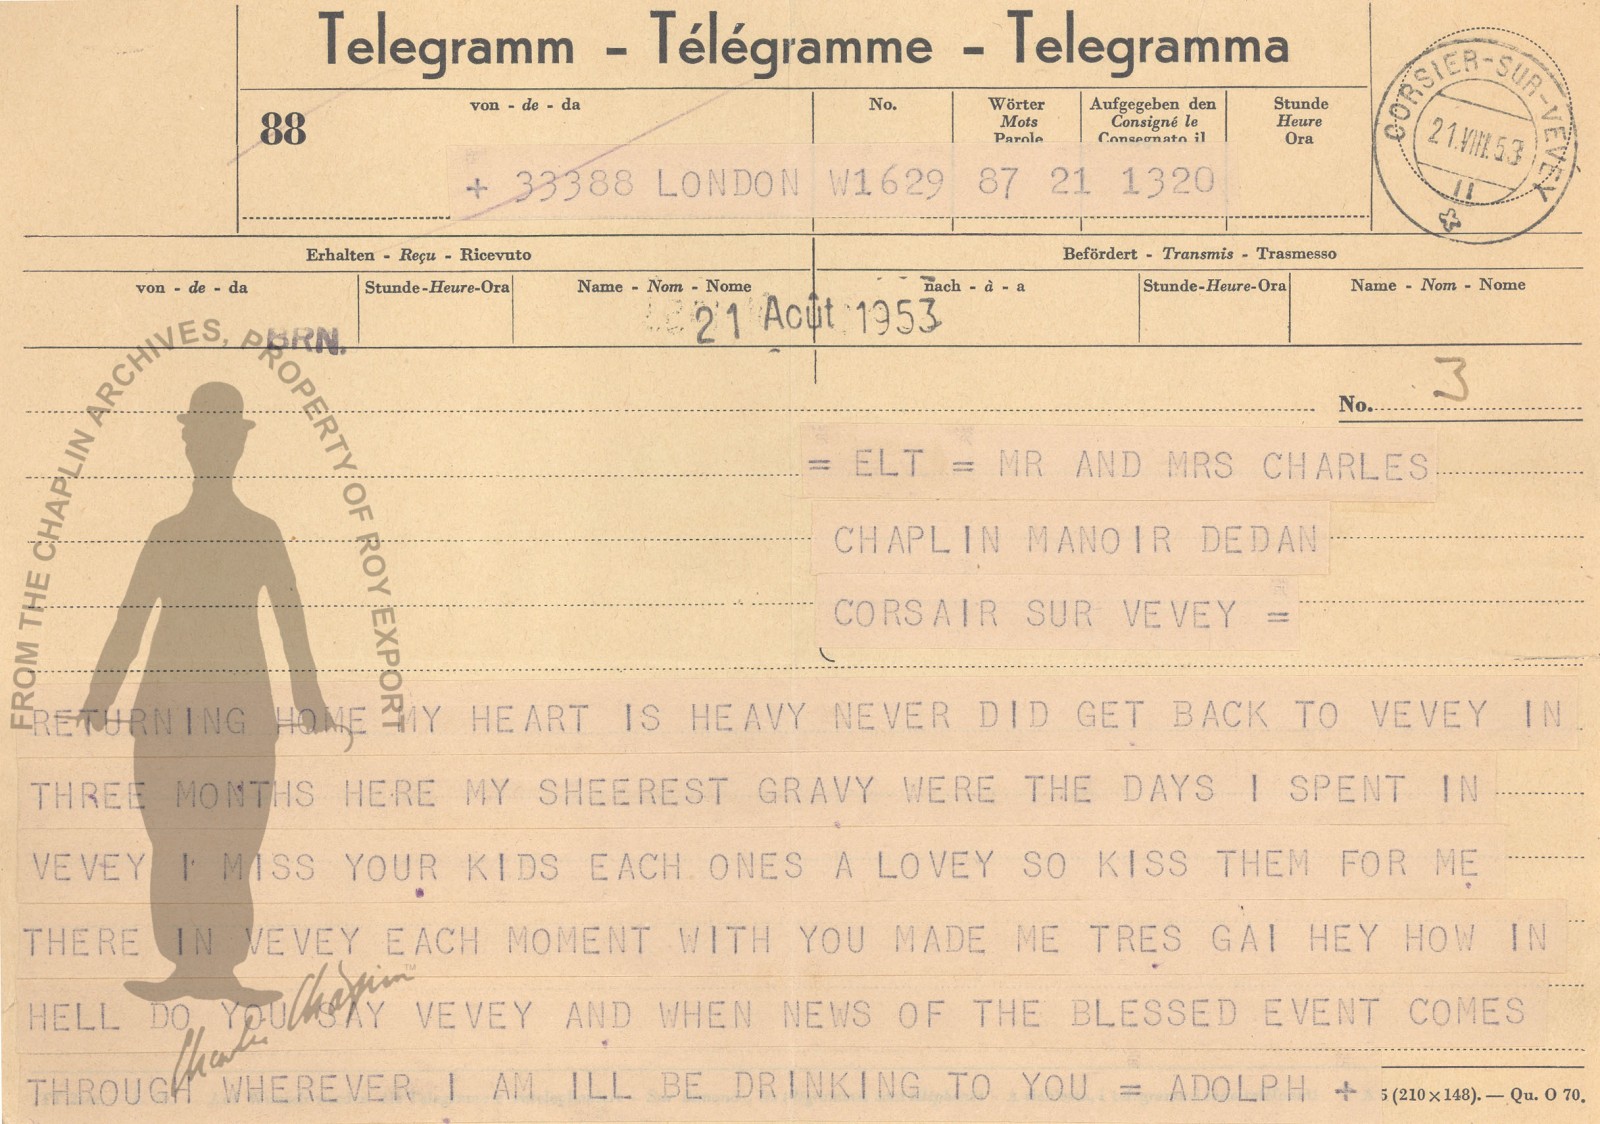 Telegramm - Télégramme - Telegramma
88
von - de - da
No.
Wörter
Mots
Parole
Aufgegeben den
Consigné le
Consegnato il
Stunde
Heure
Ora
CORSIER-SUR-VEVEY
21.VIII.53
11
+ 33388 LONDON W1629 87 21 1320
Erhalten - Reçu - Ricevuto
Befördert - Transmis - Trasmesso
von - de - da
Stunde-Heure-Ora
Name - Nom - Nome
nach - à - a
Stunde-Heure-Ora
Name - Nom - Nome
21 Août 1953
BRN.
No. 3
FROM THE CHAPLIN ARCHIVES, PROPERTY OF ROY EXPORT
= ELT = MR AND MRS CHARLES
CHAPLIN MANOIR DEDAN
CORSAIR SUR VEVEY =
RETURNING HOME MY HEART IS HEAVY NEVER DID GET BACK TO VEVEY IN
THREE MONTHS HERE MY SHEEREST GRAVY WERE THE DAYS I SPENT IN
VEVEY I MISS YOUR KIDS EACH ONES A LOVEY SO KISS THEM FOR ME
THERE IN VEVEY EACH MOMENT WITH YOU MADE ME TRES GAI HEY HOW IN
HELL DO YOU SAY VEVEY AND WHEN NEWS OF THE BLESSED EVENT COMES
Charlie Chaplin
THROUGH WHEREVER I AM ILL BE DRINKING TO YOU = ADOLPH +
5 (210×148). — Qu. O 70.